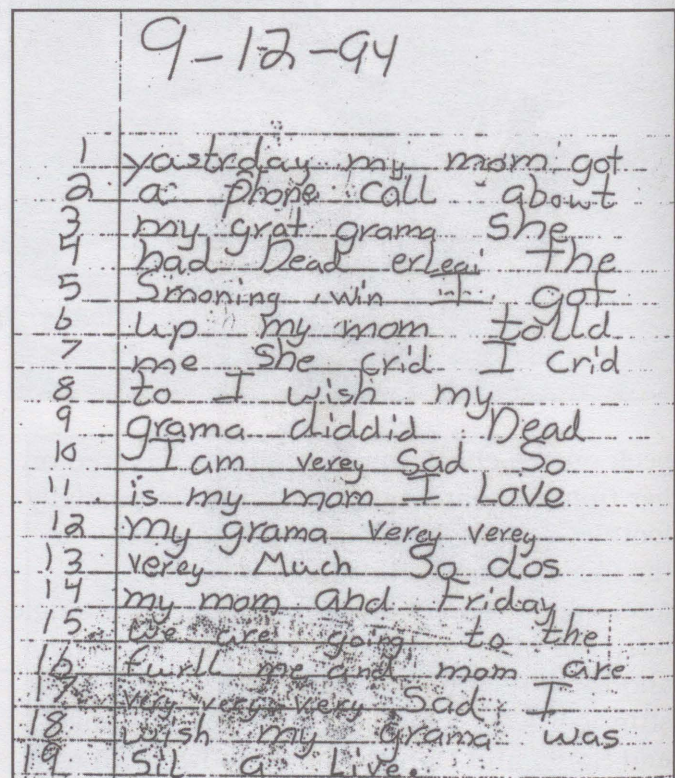 9-12-94
1 yastrday my mom got
2 a phone call abowt
3 my grat grama She
4 had Dead erLeai The
5 Smoning win I got
6 up my mom tolld
7 me She crid I crid
8 to I wish my
9 grama diddid Dead
10 I am verey Sad So
11 is my mom I Love
12 my grama verey verey
13 verey Much So dos
14 my mom and Friday
15 we are going to the
16 furll me and mom are
17 very very very Sad I
18 wish my grama was
19 Sil a Live.